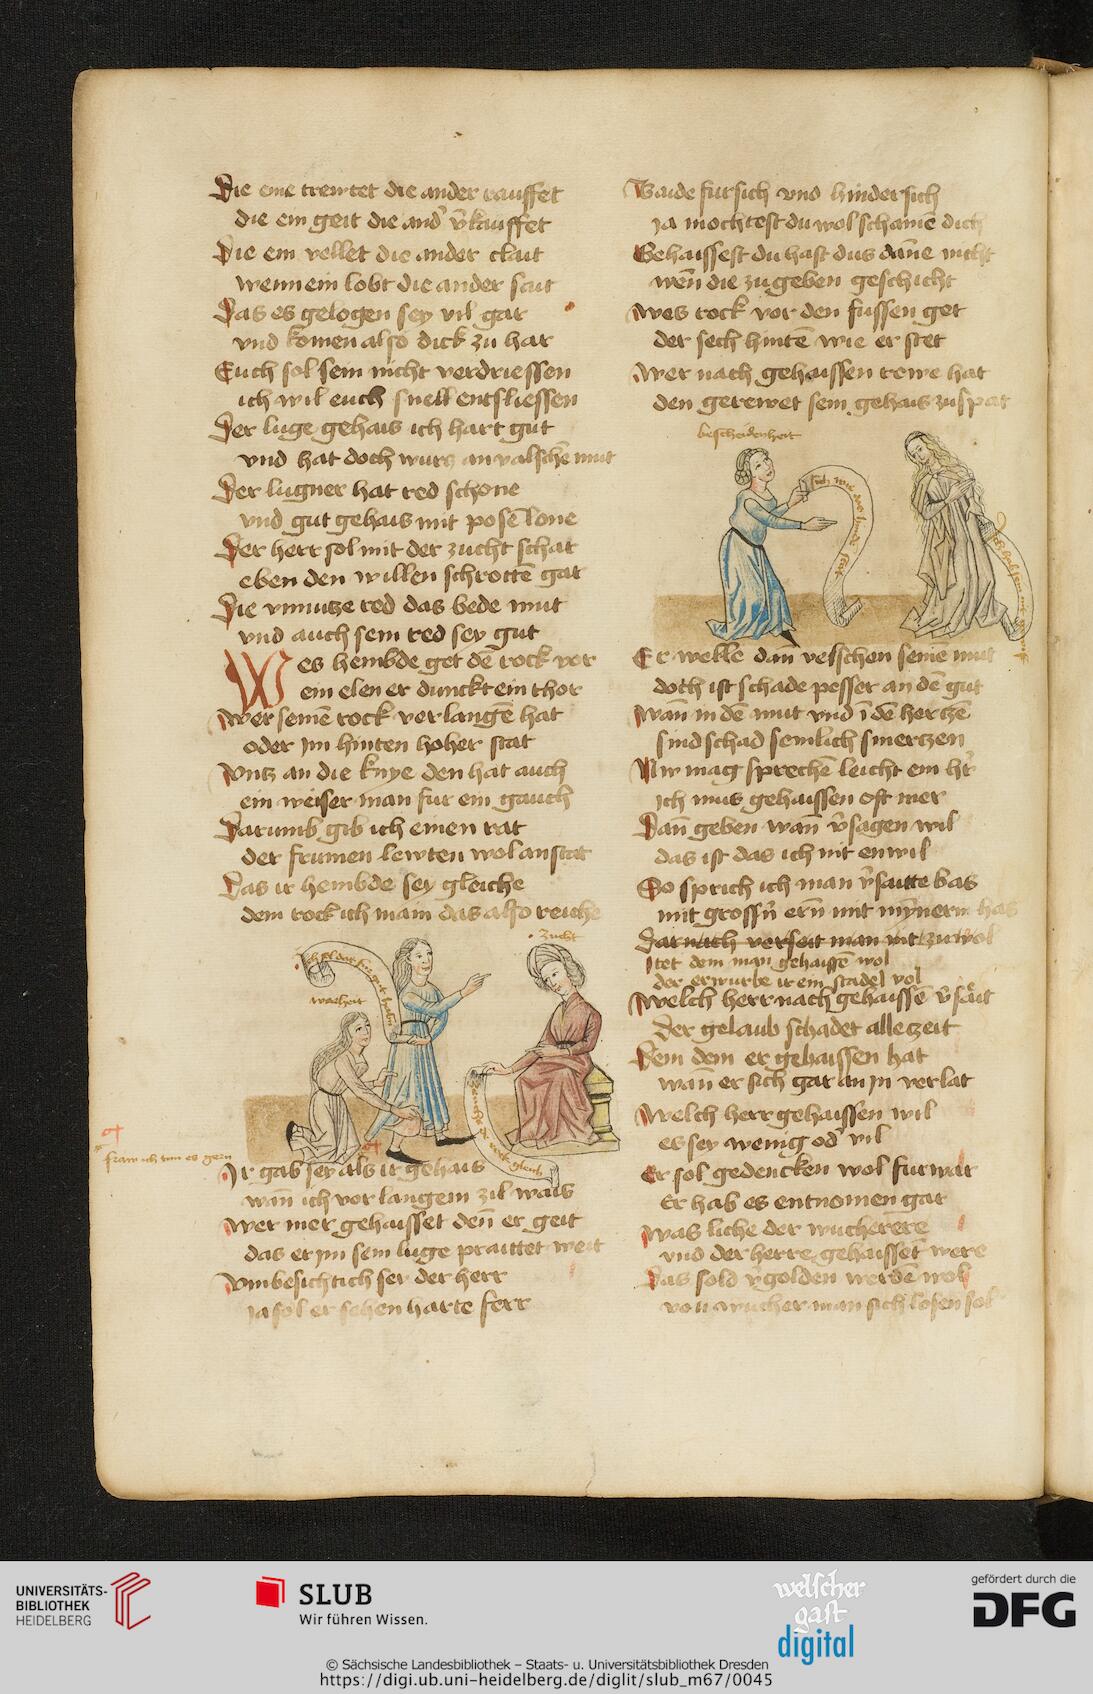 Die eine trewtet die ander rauffet
die ein geit die and' v̄kauffet
Die ein vellet die ander clait
wenn ein lobt die ander scit
Das es gelogen sey vil gar
vnd komen also dick zu har
Euch sol sein nicht verdriessen
ich wil euch snell entsliessen
Der luge gehais ich hart gut
vnd hat doch wurz an valschē mut
Der lugner hat red schone
vnd gut gehais mit posē lone
Der herr sol mit der zucht schar
eben den willen schrottē gar
Die vnnutze red das bede mut
vnd auch sein red sey gut
Wes hembde get dē rock vor
ein elen er dunckt ein thor
Wer seinē rock verlangē hat
oder im hinten hoher stat
Vntz an die knye den hat auch
ein weiser man fur ein gauch
Darumb gib ich einen rat
der frumen lewten wol anstat
Das ir hembde sey gleiche
dem rock ich main das also reiche
zucht
warheit
fraw ich tun es gern
Ir gab sey als ir gehais
wān ich vor langem zil wais
Wer mer gehaisset deñ er geit
das er im sein luge praittet weit
Vmbesichtich ser der herr
Ja sol er sehen harte ferr
Baide fursich vnd hindersich
Ja mochtest du wol schamē dich
Gehaissest du hast dus dāne nicht
wēn die zugeben geschicht
Wes rock vor den fussen get
der sech hintē wie er stet
Wer nach gehaissen rewe hat
den gerewet sein gehais zuspat
bescheidenheit
Er welle dañ velschen seine mut
doch ist schade pesser an dē gut
Wañ in dē mut vnd ī dē hertzē
sind schad semlich smertzen
Nw mag sprechē leicht ein hr̄
Ich mus gehaissen oft mer
Dañ geben wañ v̄sagen wil
das ist das ich nit enwil
So sprich ich man v̄saitte bas
mit grossn̄ ern̄ mit mȳnerm has
Darnach verseit man nit zu wol
tet dem man gehaissē wol
der erwurbe ir ein stadel vol
Welch herr nach gehaissē v̄sait
Der gelaub schadet alle zeit
Dem dem er gehaissen hat
wañ er sich gar an in verlat
Welch herr gehaissen wil
es sey wenig od' vil
Er sol gedencken wol furwar
Er hab es entnomen gar
Was liche der wucherere
vnd der herre gehaissen were
Das sold v̄golden werdē wol
von wucher man sich losen sol
UNIVERSITÄTS-
BIBLIOTHEK
HEIDELBERG
SLUB
Wir führen Wissen.
welscher
gast
digital
gefördert durch die
DFG
© Sächsische Landesbibliothek – Staats- u. Universitätsbibliothek Dresden
https://digi.ub.uni-heidelberg.de/diglit/slub_m67/0045